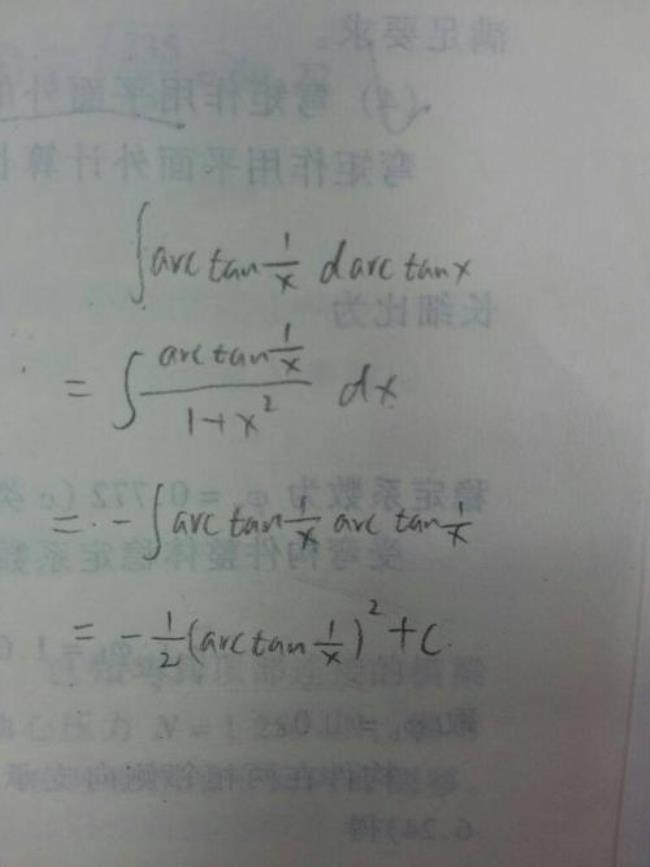 ∫arc tan 1/x d arc tan x
= ∫ (arc tan 1/x)/(1+x²) dx
= -∫arc tan 1/x arc tan 1/x
= -1/2 (arc tan 1/x)² + C.